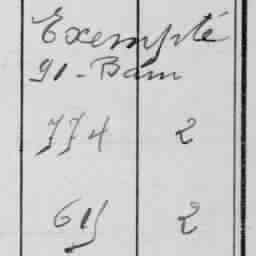 Exempté
91-Bam
774 2
615 2